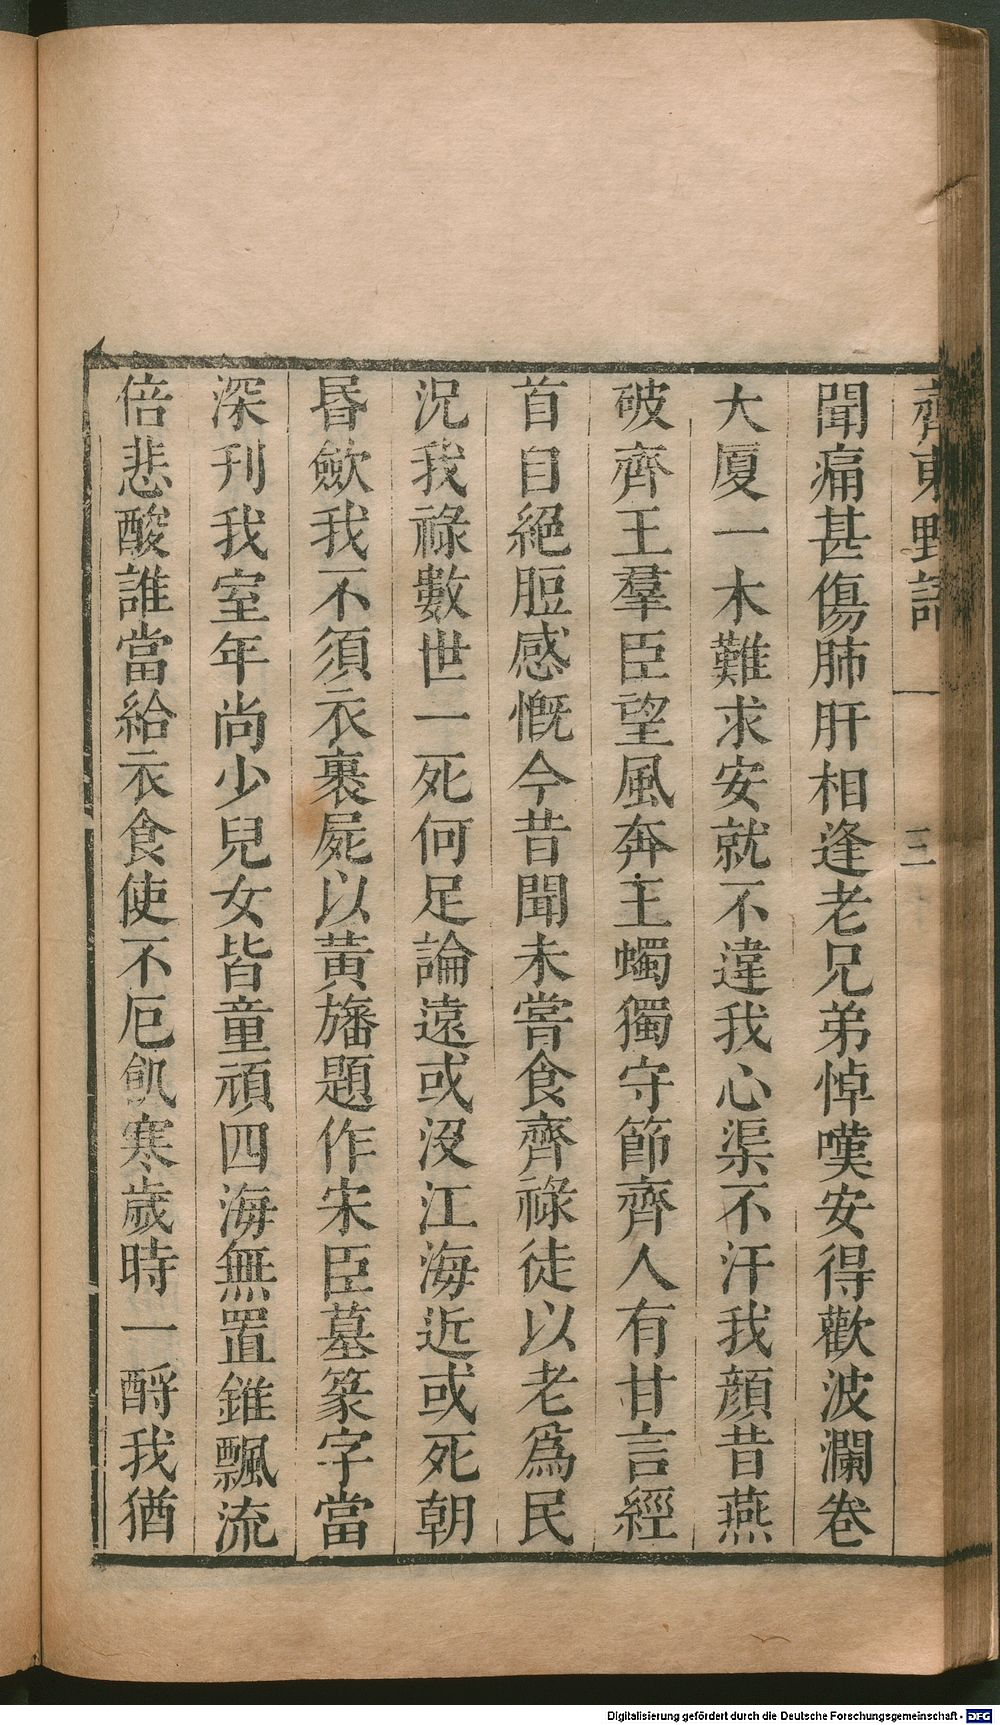 齊東野語 三
聞痛甚傷肺肝相逢老兄弟悼嘆安得歡波瀾卷
大厦一木難求安就不違我心渠不汗我顔昔燕
破齊王羣臣望風奔王蠋獨守節齊人有甘言經
首自絕脰感慨今昔聞未嘗食齊祿徒以老爲民
況我祿數世一死何足論遠或沒江海近或死朝
昬歛我不須衣裹屍以黃旛題作宋臣墓篆字當
深刋我室年尚少兒女皆童頑四海無置錐飄流
倍悲酸誰當給衣食使不厄飢寒歲時一酹我猶
Digitalisierung gefördert durch die Deutsche Forschungsgemeinschaft - DFG